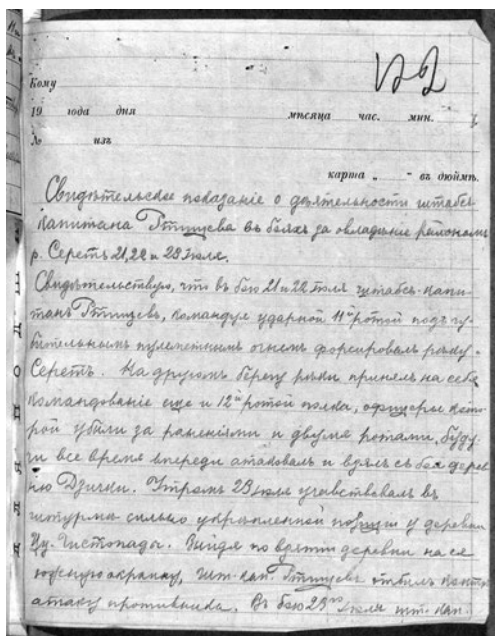 Кому
19 года дня мѣсяца час. мин.
№ изъ
карта „ “ въ дюймѣ.
Свидѣтельское показаніе о дѣятельности штабсъ
капитана Ртищева въ бояхъ за овладѣніе районом
р. Серетъ 21, 22 и 23 Iюля.
Свидѣтельствую, что въ бою 21 и 22 Iюля штабсъ-капи-
танъ Ртищевъ, командуя ударной 11ой ротой подъ гу-
бительнымъ пулеметнымъ огнемъ форсировалъ рѣку
Серетъ. На другомъ берегу рѣки принялъ на себя
командованіе еще и 12ой ротой полка, офицеры кото
рой убыли за раненіями и двумя ротами, буду-
чи все время впереди атаковалъ и взялъ съ боя дерев
ню Дзички. Утромъ 23 Iюля участвовалъ въ
штурмѣ сильно укрѣпленной позиціи у деревни
Чистопады. Выйдя по взятіи деревни на ея
южную окраину, шт.-кап. Ртищевъ отбилъ контръ
атаку противника. Въ бою 23го Iюля шт. кап.